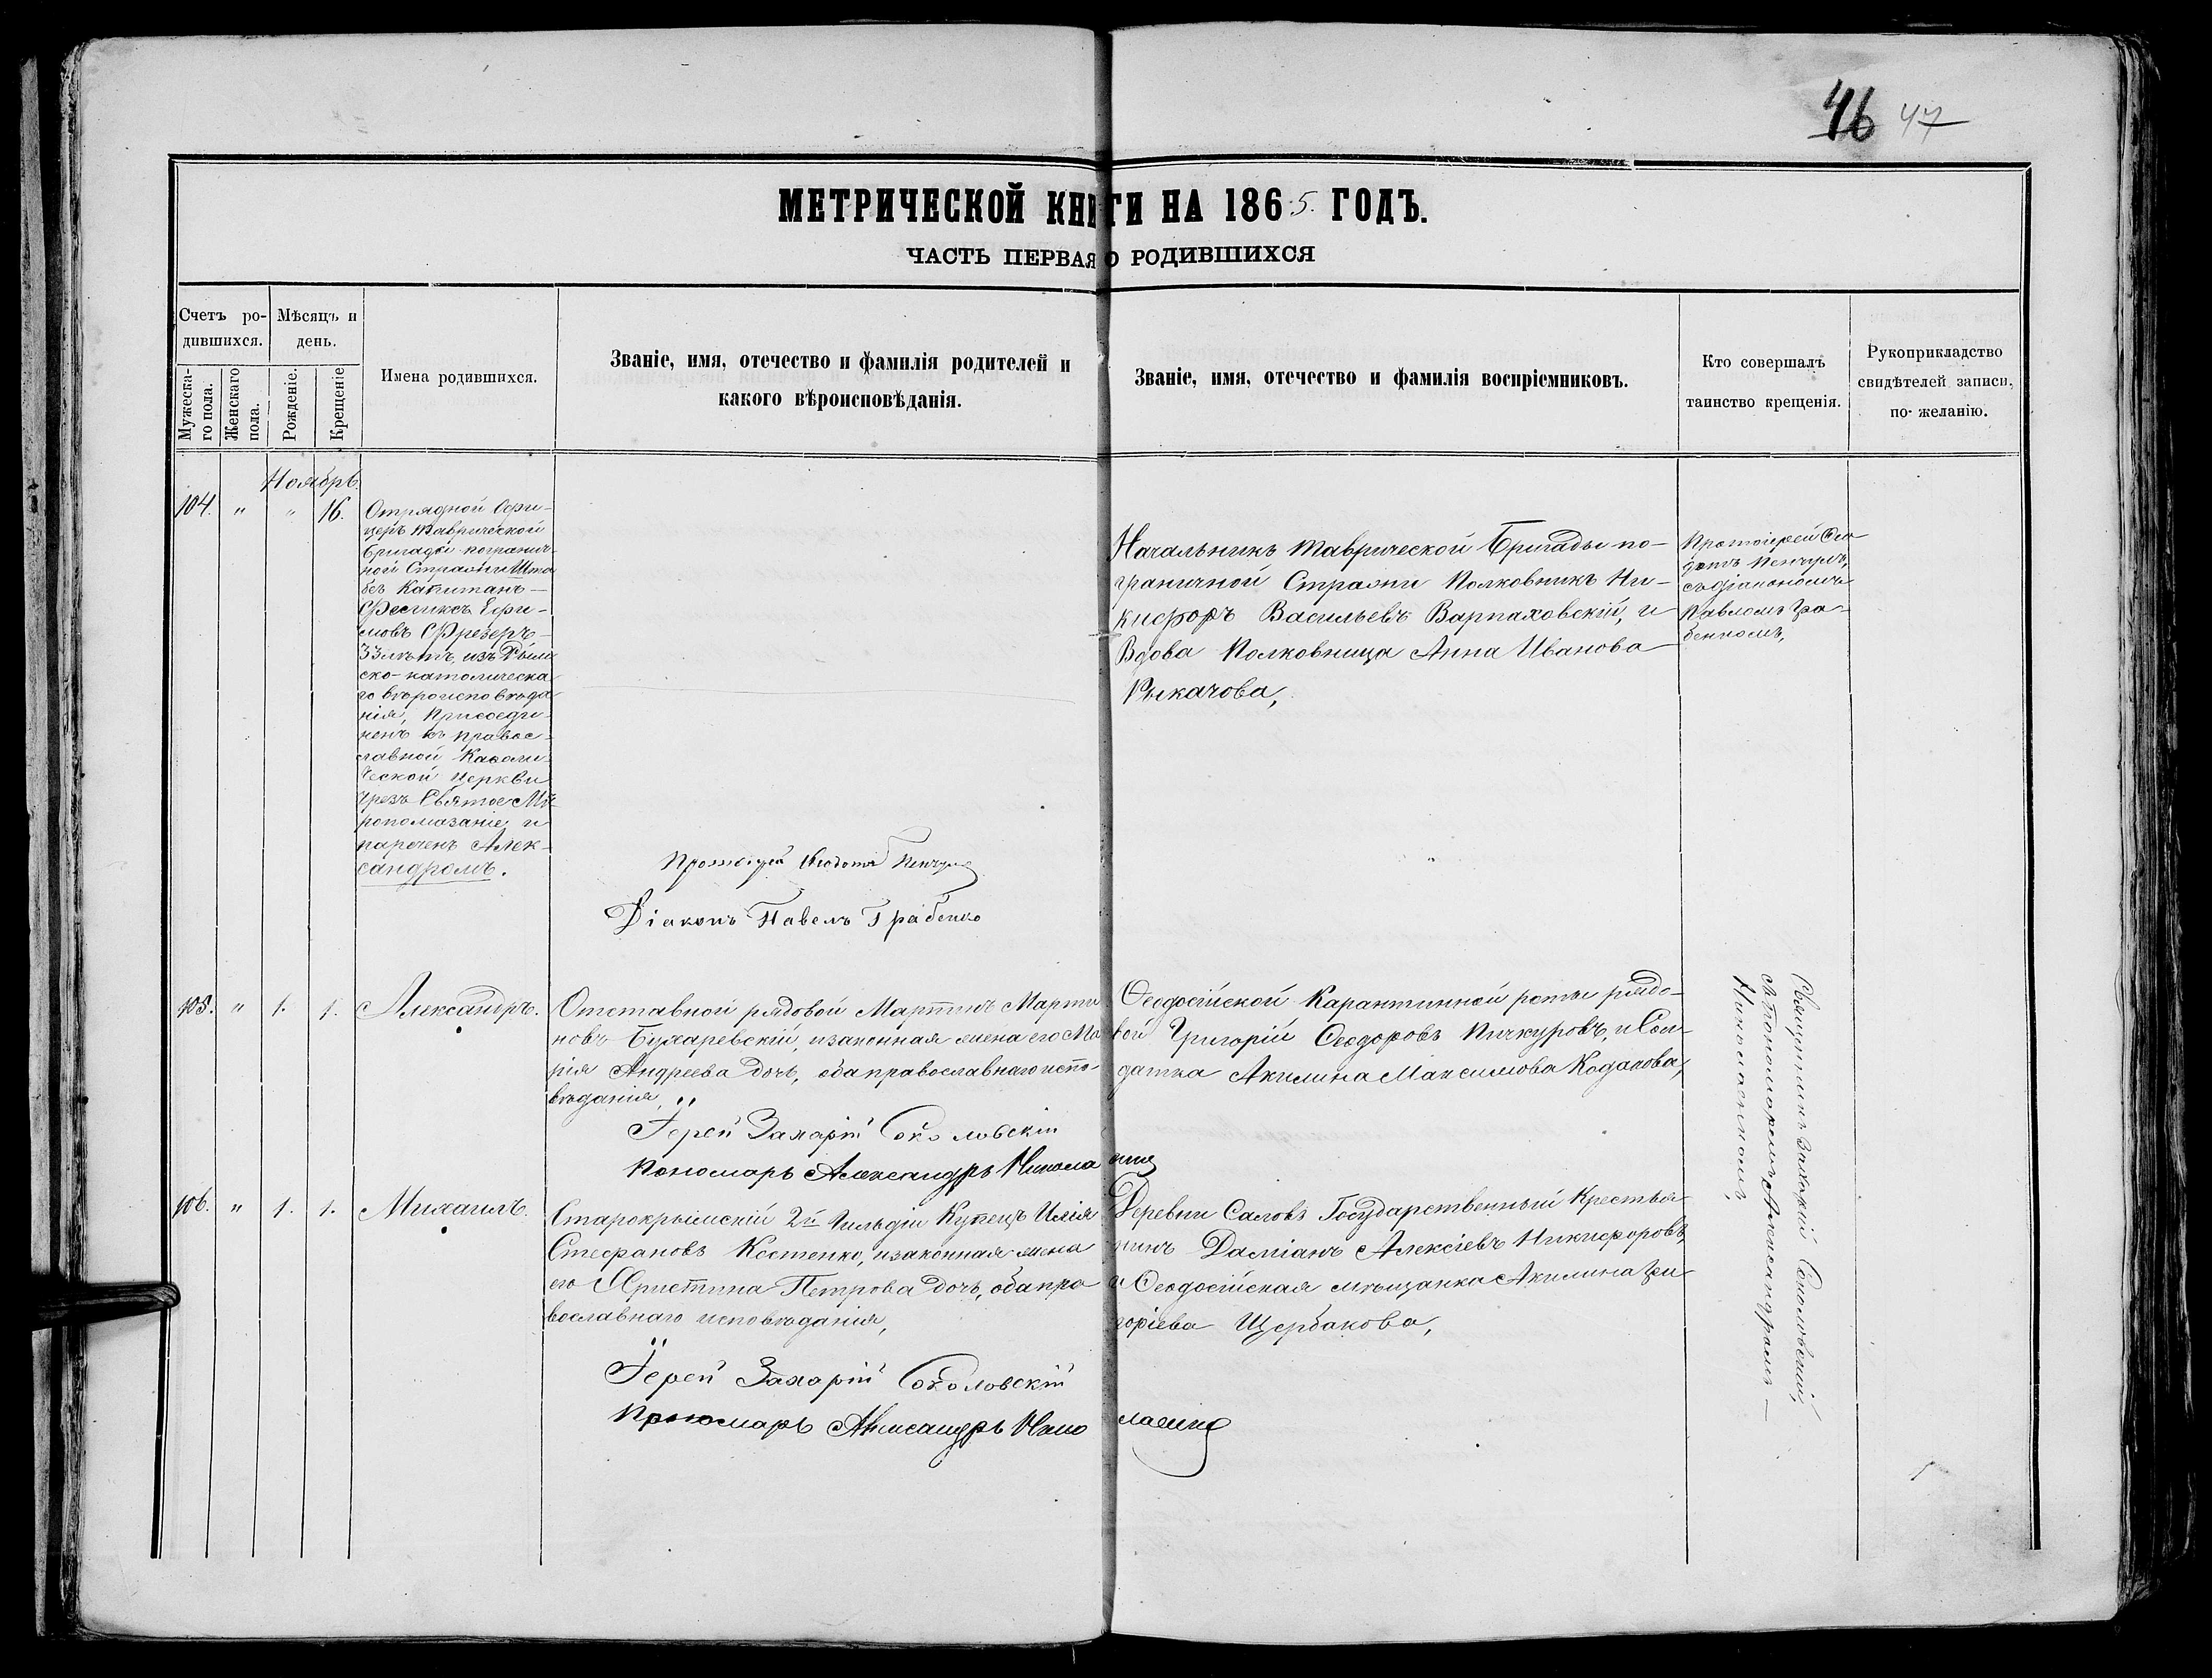 46 47
МЕТРИЧЕСКОЙ КНИГИ НА 1865. ГОДЪ.
ЧАСТЬ ПЕРВАЯ О РОДИВШИХСЯ
Счетъ ро-
дившихся.
Мужеска-
го пола.
Женскаго
пола.
Мѣсяцъ и
день.
Рожденіе.
Крещеніе
Имена родившихся.
Званіе, имя, отечество и фамилія родителей и
какого вѣроисповѣданія.
Званіе, имя, отечество и фамилія воспріемниковъ.
Кто совершалъ
таинство крещенія.
Рукоприкладство
свидѣтелей записи,
по желанію.
Ноябрь.
104. " " 16.
Отрядной Офи-
церъ Таврической
бригады погранич-
ной Стражи Шта
бсъ Капитанъ —
Феликсъ Ефи-
мовъ Фрезеръ —
из Рим
ско-католическа
го вѣроисповѣда
нія, присоеди-
ненъ къ правос-
лавной Каѳоли-
ческой церкви
чрезъ Святое Мѵ-
ропомазаніе, и
нареченъ Алек-
сандромъ.
Протоіерей Ѳеодотъ
Діаконъ Павелъ Грабенко
Начальникъ Таврической Бригады по-
граничной Стражи Полковникъ Ни-
кифоръ Васильевъ Варпаховскій, и
Вдова Полковница Анна Иванова
Рыкачова,
Протоіерей Ѳео
дотъ
съ діакономъ
Павломъ Гра-
бенкомъ,
105. " 1. 1. Александръ.
Отставной рядовой Мартинъ Марти
новъ Бухаревскій, и законная жена его Ма
рія Андреева дочь, оба православнаго испо-
вѣданія,
Іерей Захарій Соколовскій
Пономарь Александръ Никола
Ѳеодосійской Карантинной роты рядо-
вой Григорій Ѳеодоровъ Пичкуровъ, и Сол-
датка Акилина Максимова Кодакова,
106. " 1. 1. Михаилъ.
Старокрымскій 2й Гильдіи Купецъ Илія
Стефановъ Костенко, и законная жена
его Христина Петрова дочь, оба пра
вославнаго исповѣданія,
Іерей Захарій Соколовскій
Пономарь Александръ
Деревни Саловъ Государственный Крестья-
нинъ Даміанъ Алексіевъ Никифоровъ,
и Ѳеодосійская мѣщанка Акилина Гри
горіева Щербакова,
Священникъ Захарій Соколовскій,
съ Пономоремъ Александромъ —